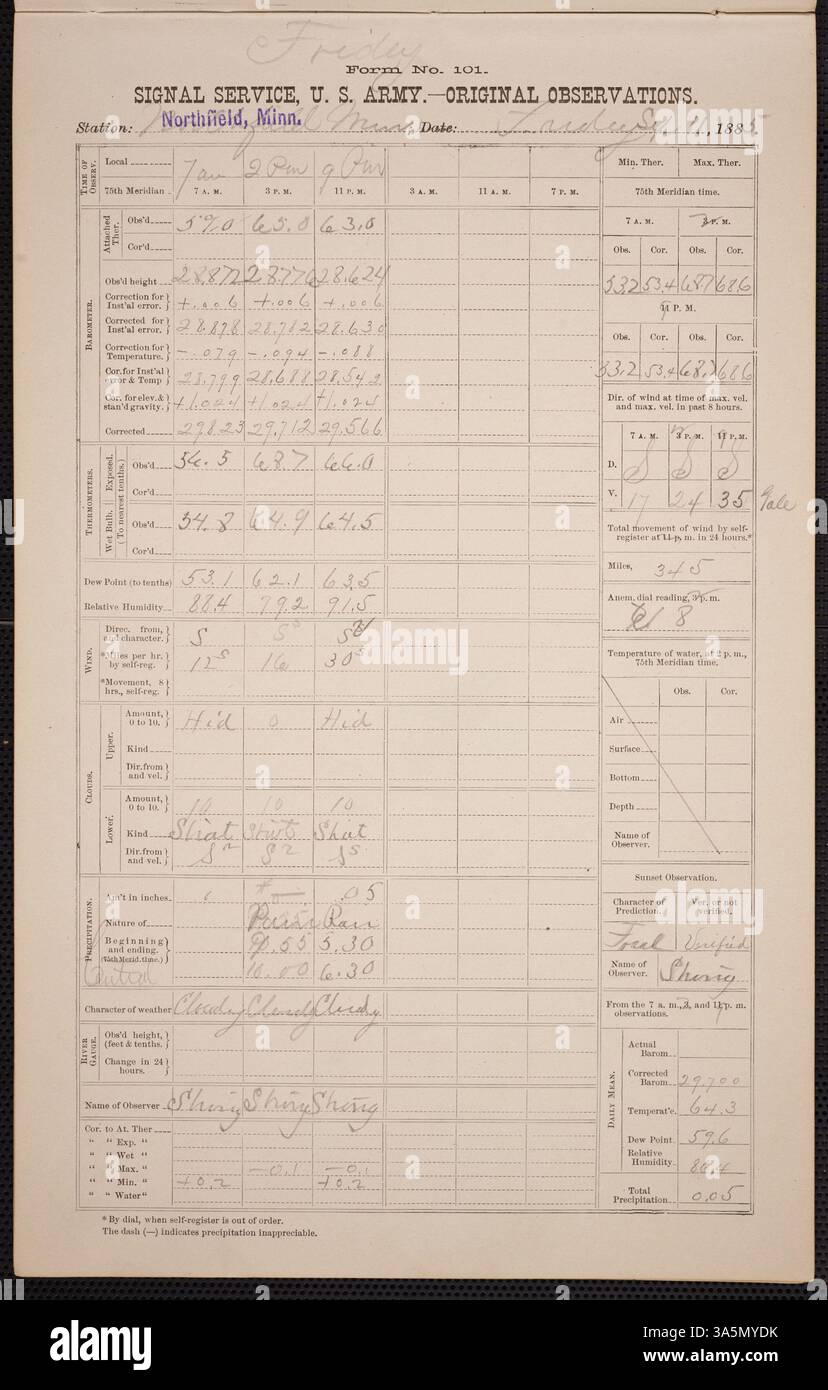 Friday
Form No. 101.
SIGNAL SERVICE, U. S. ARMY.—ORIGINAL OBSERVATIONS.
Station: Northfield, Minn. Date: Friday 1885
TIME OF OBSERV.
Local 7 am 2 Pm 9 Pm
75th Meridian 7 A. M. 3 P. M. 11 P. M. 3 A. M. 11 A. M. 7 P. M.
BAROMETER.
Attached Ther.
Obs'd 65.0 63.0
Cor'd
Obs'd height 28.872 28.776 28.624
Correction for Inst'al error. +.006 +.006 +.006
Corrected for Inst'al error. 28.878 28.782 28.630
Correction for Temperature. -.079 -.094 -.088
Cor. for Inst'al error & Temp 28.799 28.688 28.542
Cor. for elev. & stan'd gravity. +1.024 +1.024 +1.024
Corrected 29.823 29.712 29.566
THERMOMETERS.
Exposed.
(To nearest tenths.)
Obs'd 56.5 68.7 66.0
Cor'd
Wet Bulb.
Obs'd 54.8 64.9 64.5
Cor'd
Dew Point (to tenths) 53.1 62.1 63.5
Relative Humidity 88.4 79.2 91.5
WIND.
Direc. from, and character. S
*Miles per hr. by self-reg. 12 16 30
*Movement, 8 hrs., self-reg.
CLOUDS.
Upper.
Amount, 0 to 10. Hid 0 Hid
Kind
Dir. from and vel.
Lower.
Amount, 0 to 10. 10 10 10
Kind Strat Strat Strat
Dir. from and vel.
PRECIPITATION.
Am't in inches .05
Nature of Rain Rain
Beginning and ending. (75th Merid. time.) 9.55 5.30
10.00 6.30
Central
Character of weather Cloudy Cloudy Cloudy
RIVER GAUGE.
Obs'd height, (feet & tenths.
Change in 24 hours.
Name of Observer
Cor. to At. Ther
" " Exp. "
" " Wet "
" " Max. " -0.1 -0.1
" " Min. " +0.2 +0.2
" " Water"
* By dial, when self-register is out of order.
The dash (—) indicates precipitation inappreciable.
Min. Ther. Max. Ther.
75th Meridian time.
7 A. M. 3 P. M.
Obs. Cor. Obs. Cor.
53.2 53.4 68.7 68.6
11 P. M.
Obs. Cor. Obs. Cor.
53.2 53.4 68.7 68.6
Dir. of wind at time of max. vel. and max. vel. in past 8 hours.
7 A. M. 3 P. M. 11 P. M.
D. S S S
V. 17 24 35 Gale
Total movement of wind by self-register at 11 p. m. in 24 hours.*
Miles, 345
Anem. dial reading, 3 p. m.
8
Temperature of water, at 2 p. m., 75th Meridian time.
Obs. Cor.
Air
Surface
Bottom
Depth
Name of Observer.
Sunset Observation.
Character of Prediction. Ver. or not verified.
Verified
Name of Observer.
From the 7 a. m., 3, and 11 p. m. observations.
DAILY MEAN.
Actual Barom.
Corrected Barom. 29.700
Temperat'e. 64.3
Dew Point 59.6
Relative Humidity.
Total Precipitation. 0.05
alamy
3A5MYDK